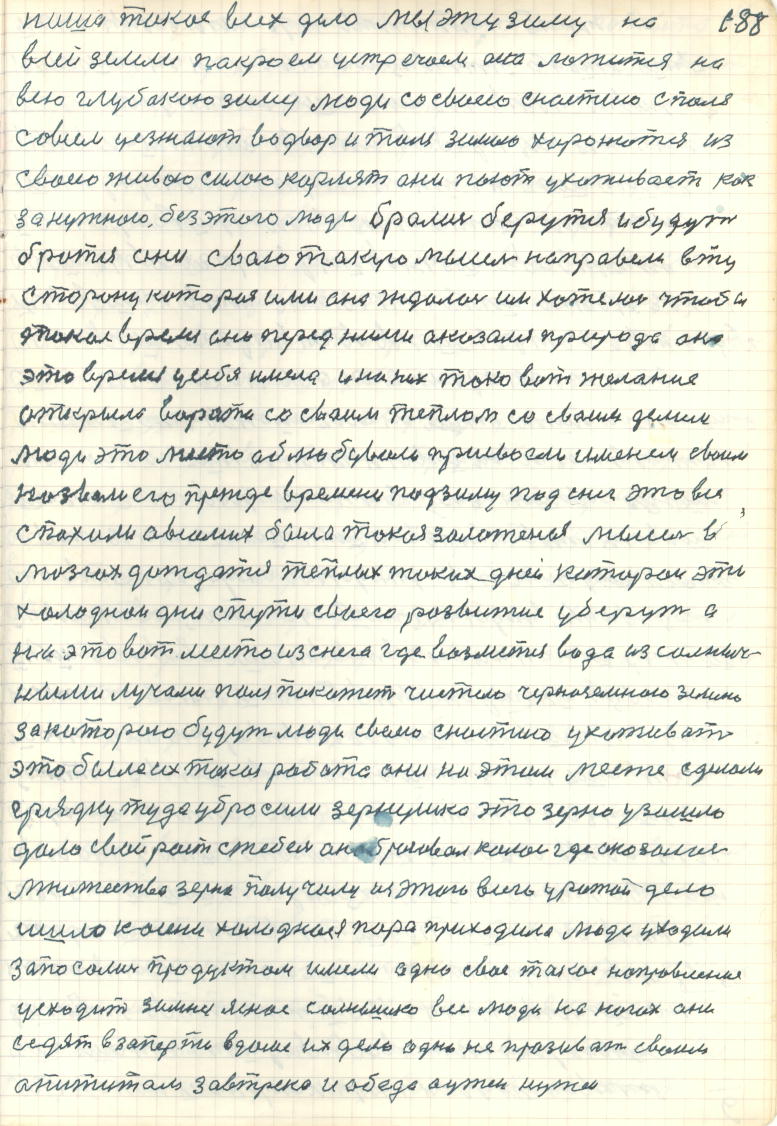 наша такое всех дело мы эту зиму на 188
всей земли пакроем устречаем она ложится на
всю глубакою зиму люди со своею снастию с поля
совсем уезжают во двор и там зимою хоронются из
своею живою силою кормят они поют ухаживает как
за нужною, без этого люди брались берутся и будут
братся они сваю такую мысел направели в ту
сторону которая ими она ждалас им хотелос чтобы
такое время она перед ними аказался природа она
это время у себя имела и на них тако вот желание
аткрыла варата со сваим теплом со сваим делом
люди это место аблюбували присвоели именем своим
назвали его прежде времени подзиму под снег это все
спахали а в самих была такая заложеная мысел в
мозгах дождатся теплых таких дней которои эти
холоднои дни с пути своего развитие уберут а
на это вот место из снега где возмется вода из солнеч-
ными лучами поля покажет чистою черноземною землю
за которою будут люди своею снастию ухаживат
это была их такая работа они на этом месте сделали
грядку туда убросили зернушко это зерно узашло
дало свой рост стебел колос где оказалос
множество зерна получили из этого всего урожай дело
шило к осени холодная пора приходила люди уходили
запосалис продуктом имели одно свое такое направление
усходит зимнея ясное солнышко все люди на ногах они
седят взаперти в доме их дело одно не прозиват своим
апититам завтрека и обеда а ужен нужен